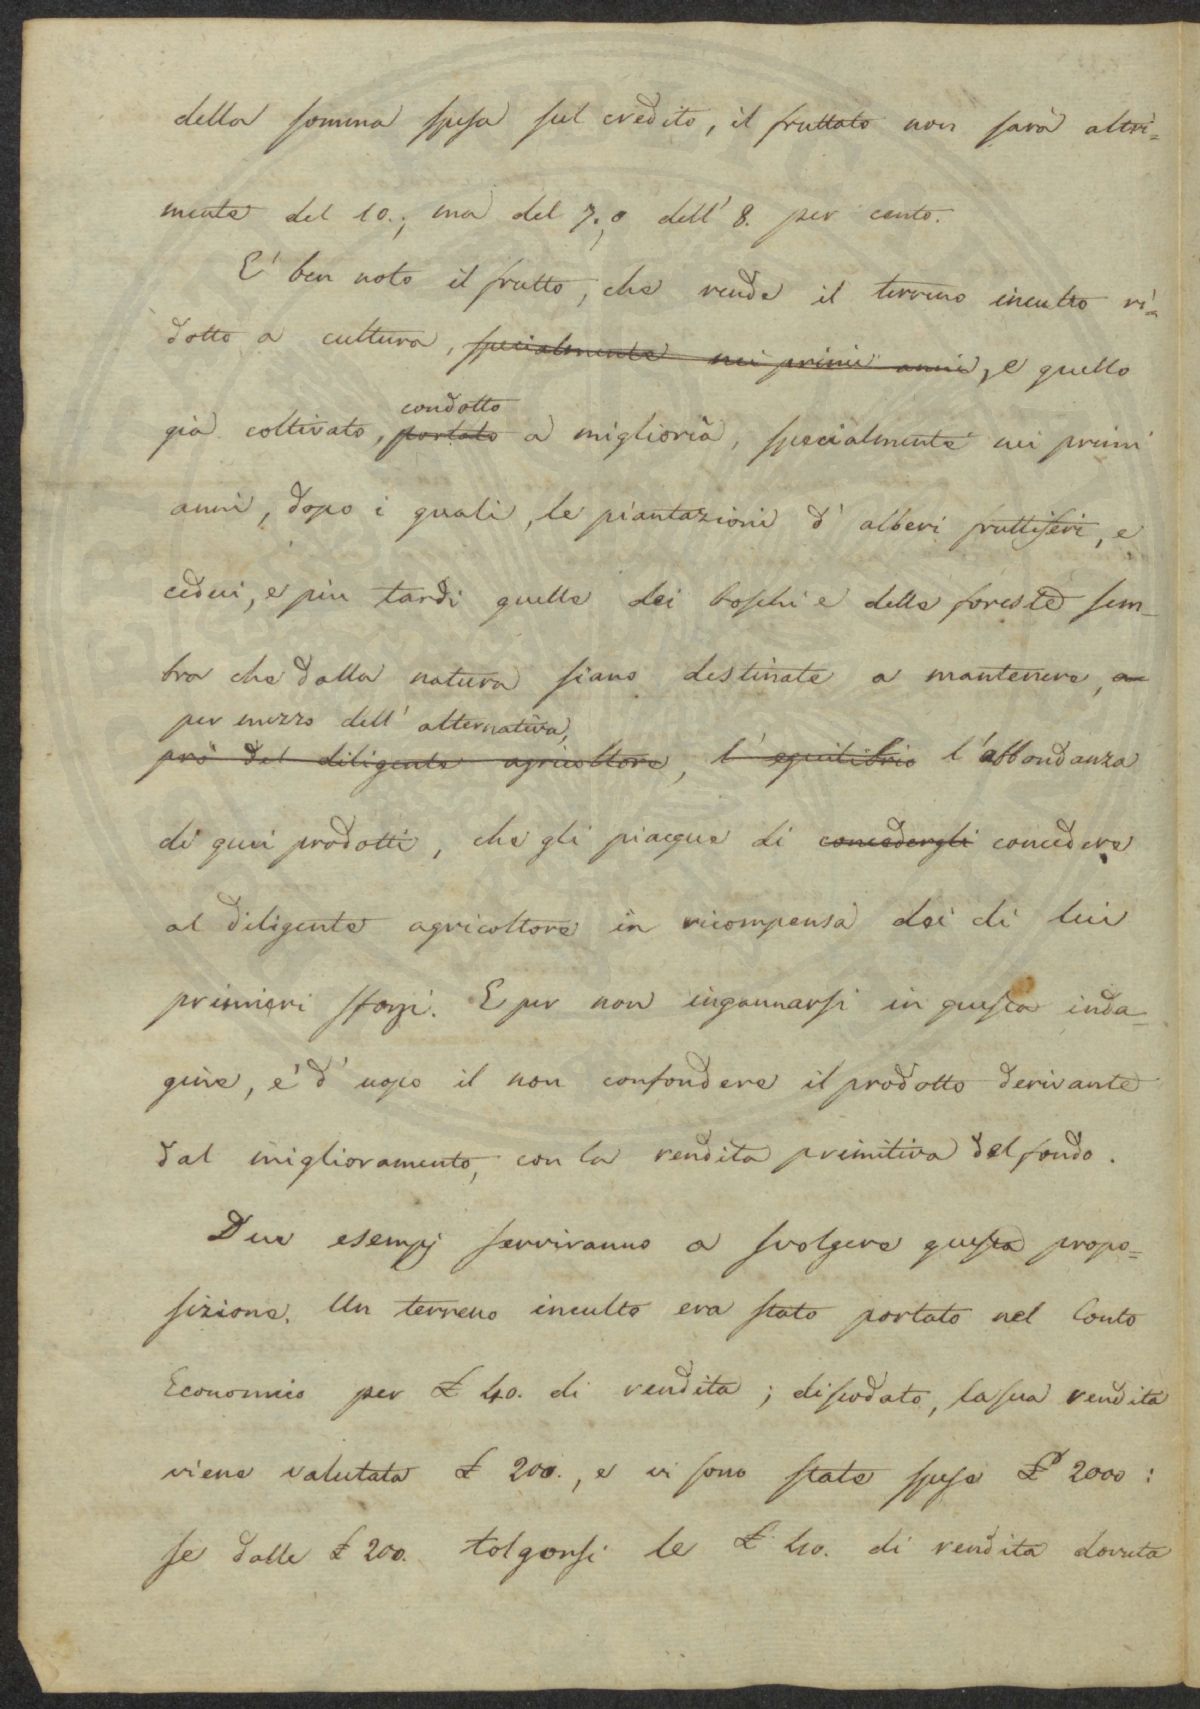 della somma spesa sul credito, il fruttato non sarà altri=
mente del 10.; ma del 7., o dell' 8. per cento.
E' ben noto il frutto, che rende il terreno inculto ri=
dotto a cultura, specialmente nei primi anni, e quello
condotto
già coltivato, portato a miglioria, specialmente nei primi
anni, dopo i quali, le piantazioni d' alberi fruttiferi, e
cedui, e più tardi quelle dei boschi e delle foreste sem-
bra che dalla natura siano destinate a mantenere, a
per mezzo dell' alternativa,
prò del diligente agricoltore, l' equilibrio l' abbondanza
di quei prodotti, che gli piacque di concedergli concedere
al diligente agricoltore in ricompensa dei di lui
primieri sforzi. E per non ingannarsi in questa inda-
gine, e' d' uopo il non confondere il prodotto derivante
dal miglioramento, con la rendita primitiva del fondo.
Due esempj serviranno a svolgere questa propo=
sizione. Un terreno inculto era stato portato nel Conto
Economico per £ 40. di rendita; dissodato, la sua rendita
viene valutata £ 200., e vi sono state spese £ 2000:
se dalle £ 200. tolgonsi le £ 40. di rendita dovuta